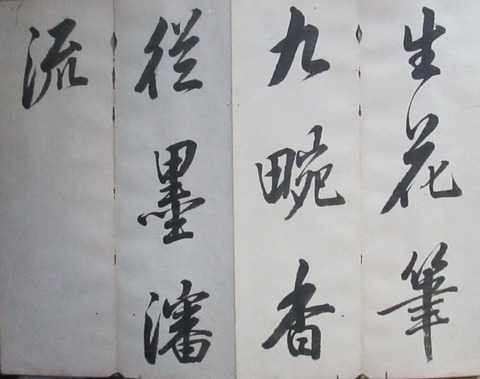 生花筆
九畹香
從墨瀋
流